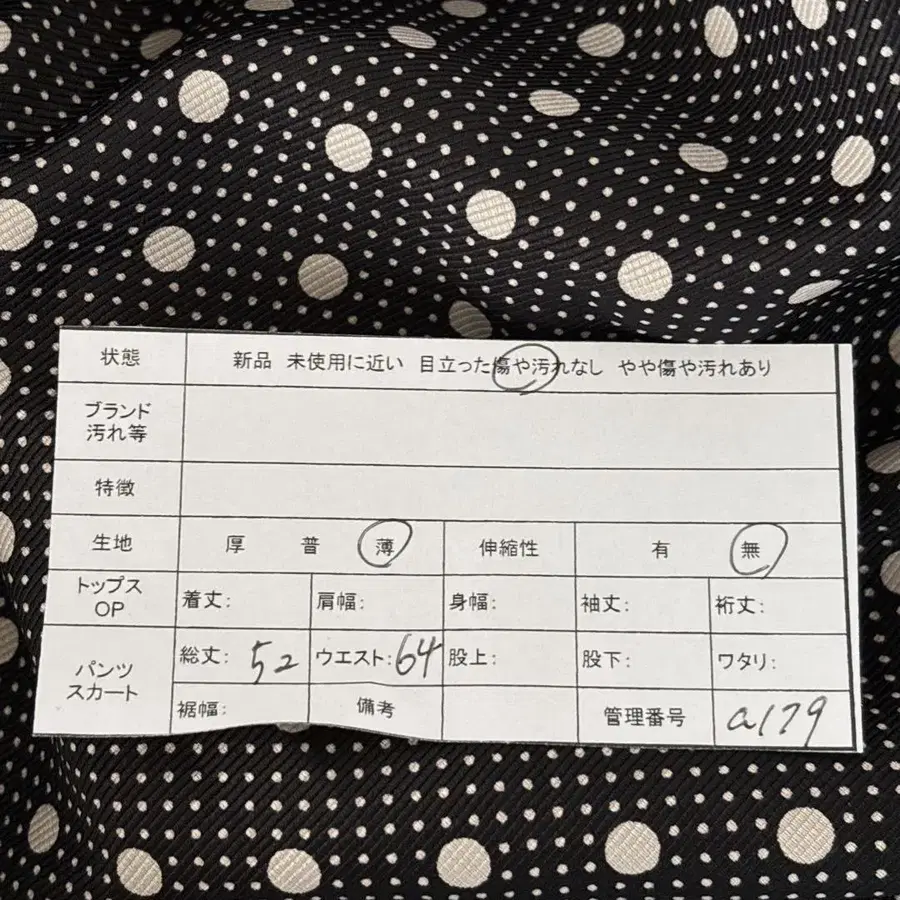 状態 新品 未使用に近い 目立った傷や汚れなし やや傷や汚れあり
ブランド
汚れ等
特徴
生地 厚 普 薄 伸縮性 有 無
トップス
OP
着丈: 肩幅: 身幅: 袖丈: 裄丈:
パンツ
スカート
総丈: 52 ウエスト: 64 股上: 股下: ワタリ:
裾幅: 備考 管理番号 a179